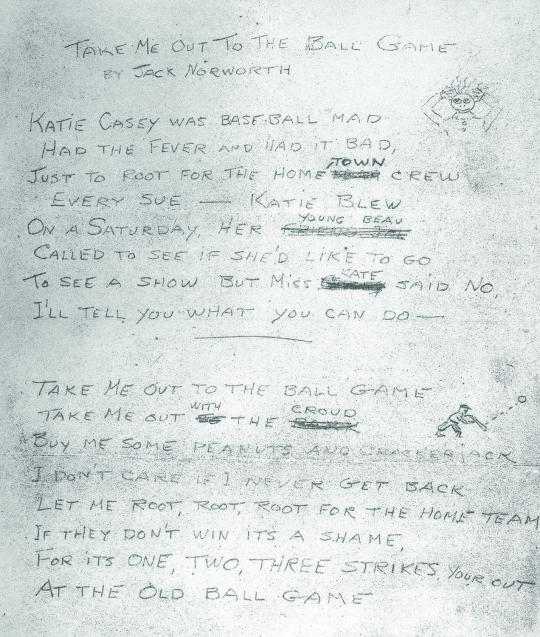 TAKE ME OUT TO THE BALL GAME
BY JACK NORWORTH
KATIE CASEY WAS BASE-BALL MAD
HAD THE FEVER AND HAD IT BAD,
JUST TO ROOT FOR THE HOME TOWN CREW
EVERY SUE — KATIE BLEW
ON A SATURDAY, HER YOUNG BEAU
CALLED TO SEE IF SHE'D LIKE TO GO
TO SEE A SHOW BUT MISS KATE SAID NO,
I'LL TELL YOU WHAT YOU CAN DO —
TAKE ME OUT TO THE BALL GAME
TAKE ME OUT WITH THE CROUD
BUY ME SOME PEANUTS AND CRACKERJACK
I DON'T CARE IF I NEVER GET BACK
LET ME ROOT, ROOT, ROOT FOR THE HOME TEAM
IF THEY DON'T WIN ITS A SHAME,
FOR ITS ONE, TWO, THREE STRIKES YOUR OUT
AT THE OLD BALL GAME